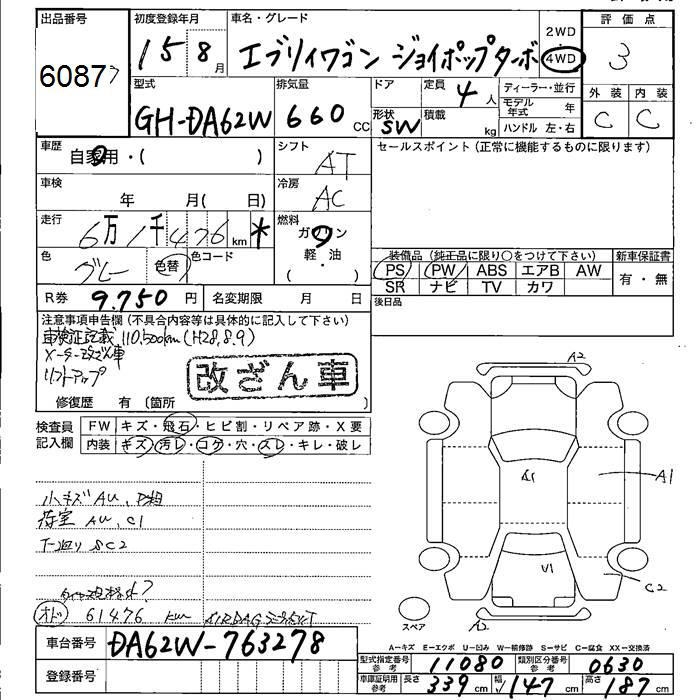 出品番号
60877
初度登録年月
15 8月
車名・グレード
エブリィワゴン ジョイポップターボ
2WD
4WD
評価点
3
外装 内装
C C
型式
GH-DA62W
排気量
660 CC
ドア
形状
SW
定員
4人
積載
kg
ディーラー・並行
モデル年式 年
ハンドル 左・右
車歴
自家用・( )
シフト
AT
車検
年 月( 日)
冷房
AC
走行
6万1千476km *
燃料
ガソリン
軽・油
( )
色
グレー
色替
色コード
R券
9,750円
名変期限 月 日
セールスポイント(正常に機能するものに限ります)
装備品(純正品に限り○をつけて下さい)
PS PW ABS エアB AW
SR ナビ TV カワ
新車保証書
有・無
後日品
注意事項申告欄(不具合内容等は具体的に記入して下さい)
車検証記載 110,500km(H28.8.9)
メーター改ざん車
リフトアップ
改ざん車
修復歴 有(箇所 )
検査員
記入欄
FW キズ・飛石・ヒビ割・リペア跡・X要
内装 キズ・汚レ・コゲ・穴・スレ・キレ・破レ
小キズAU、
荷室 AU、C1
下廻り SC2
オド 61476 km
車台番号
DA62W-763278
登録番号
A2
A1
A1
U1
C2
A2
スペア
A-キズ E-エクボ U-凹み W-補修跡 S-サビ C-腐食 XX-交換済
型式指定番号
参考
11080
類別区分番号
参考
0630
車庫証明用
参考
長さ 339cm 幅 147cm 高さ 187cm